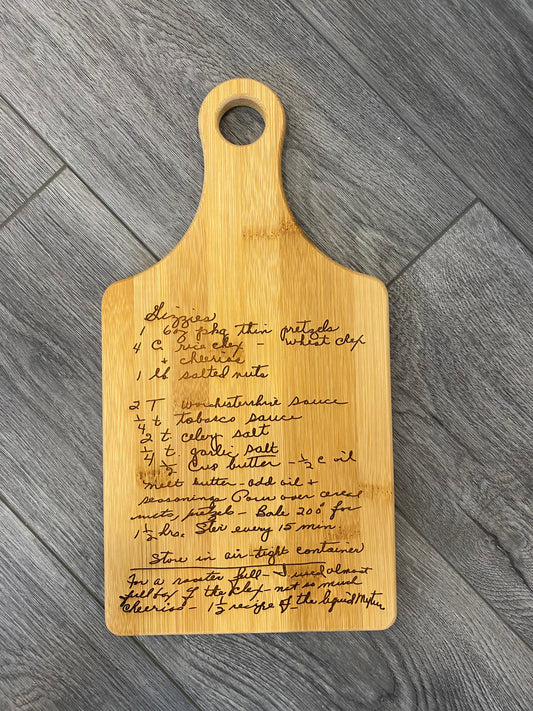 Gizzies
1 6oz pkg thin pretzels
4 C. rice chex - wheat chex
+ cheerios
1 lb salted nuts
2 T worchistershire sauce
1/4 t tobasco sauce
2 t celery salt
1/4 t. garlic salt
1/2 cup butter - 1/2 c oil
melt butter - add oil +
seasonings Pour over cereal
nuts, pretzels - Bake 200° for
1 1/2 hrs. Stir every 15 min.
Store in air-tight container
For a roaster full - I used almost
full box of the chex - not so much
cheerios - 1 1/2 recipe of the liquid